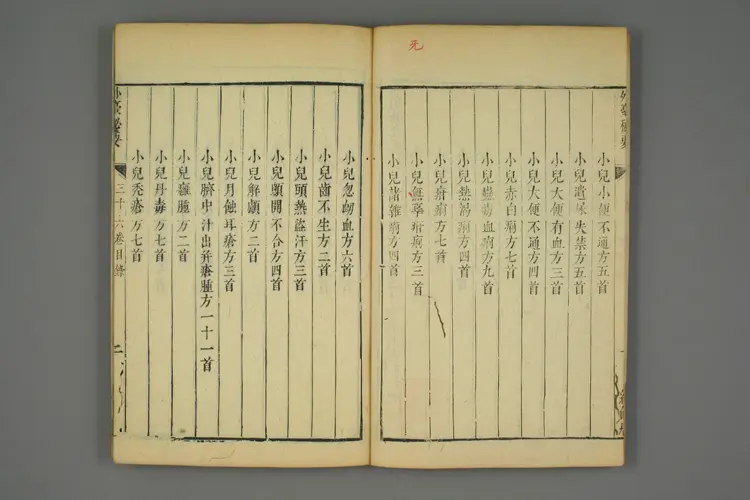 小兒小便不通方五首
小兒遺尿失禁方五首
小兒大便有血方三首
小兒大便不通方四首
小兒赤白痢方七首
小兒蠱毒血痢方九首
小兒熱渴痢方四首
小兒疳痢方七首
小兒無辜疳痢方三首
小兒諸雜痢方四首
小兒忽衂血方六首
小兒齒不生方二首
小兒頭熱盜汗方三首
小兒顖開不合方四首
小兒解顱方二首
小兒月蝕耳瘡方三首
小兒臍中汁出并瘡腫方一十一首
小兒癰腫方二首
小兒丹毒方七首
小兒禿瘡方七首
外臺秘要
三十六卷目錄